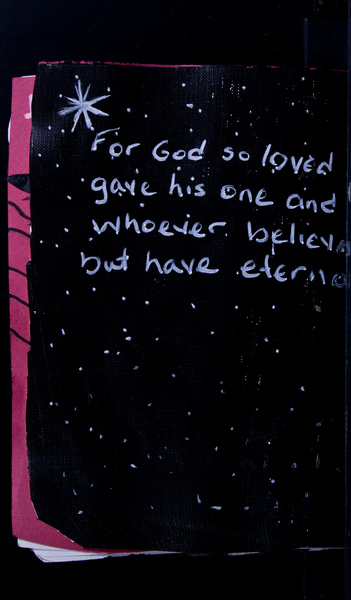 For God so loved
gave his one and
whoever believ
but have etern